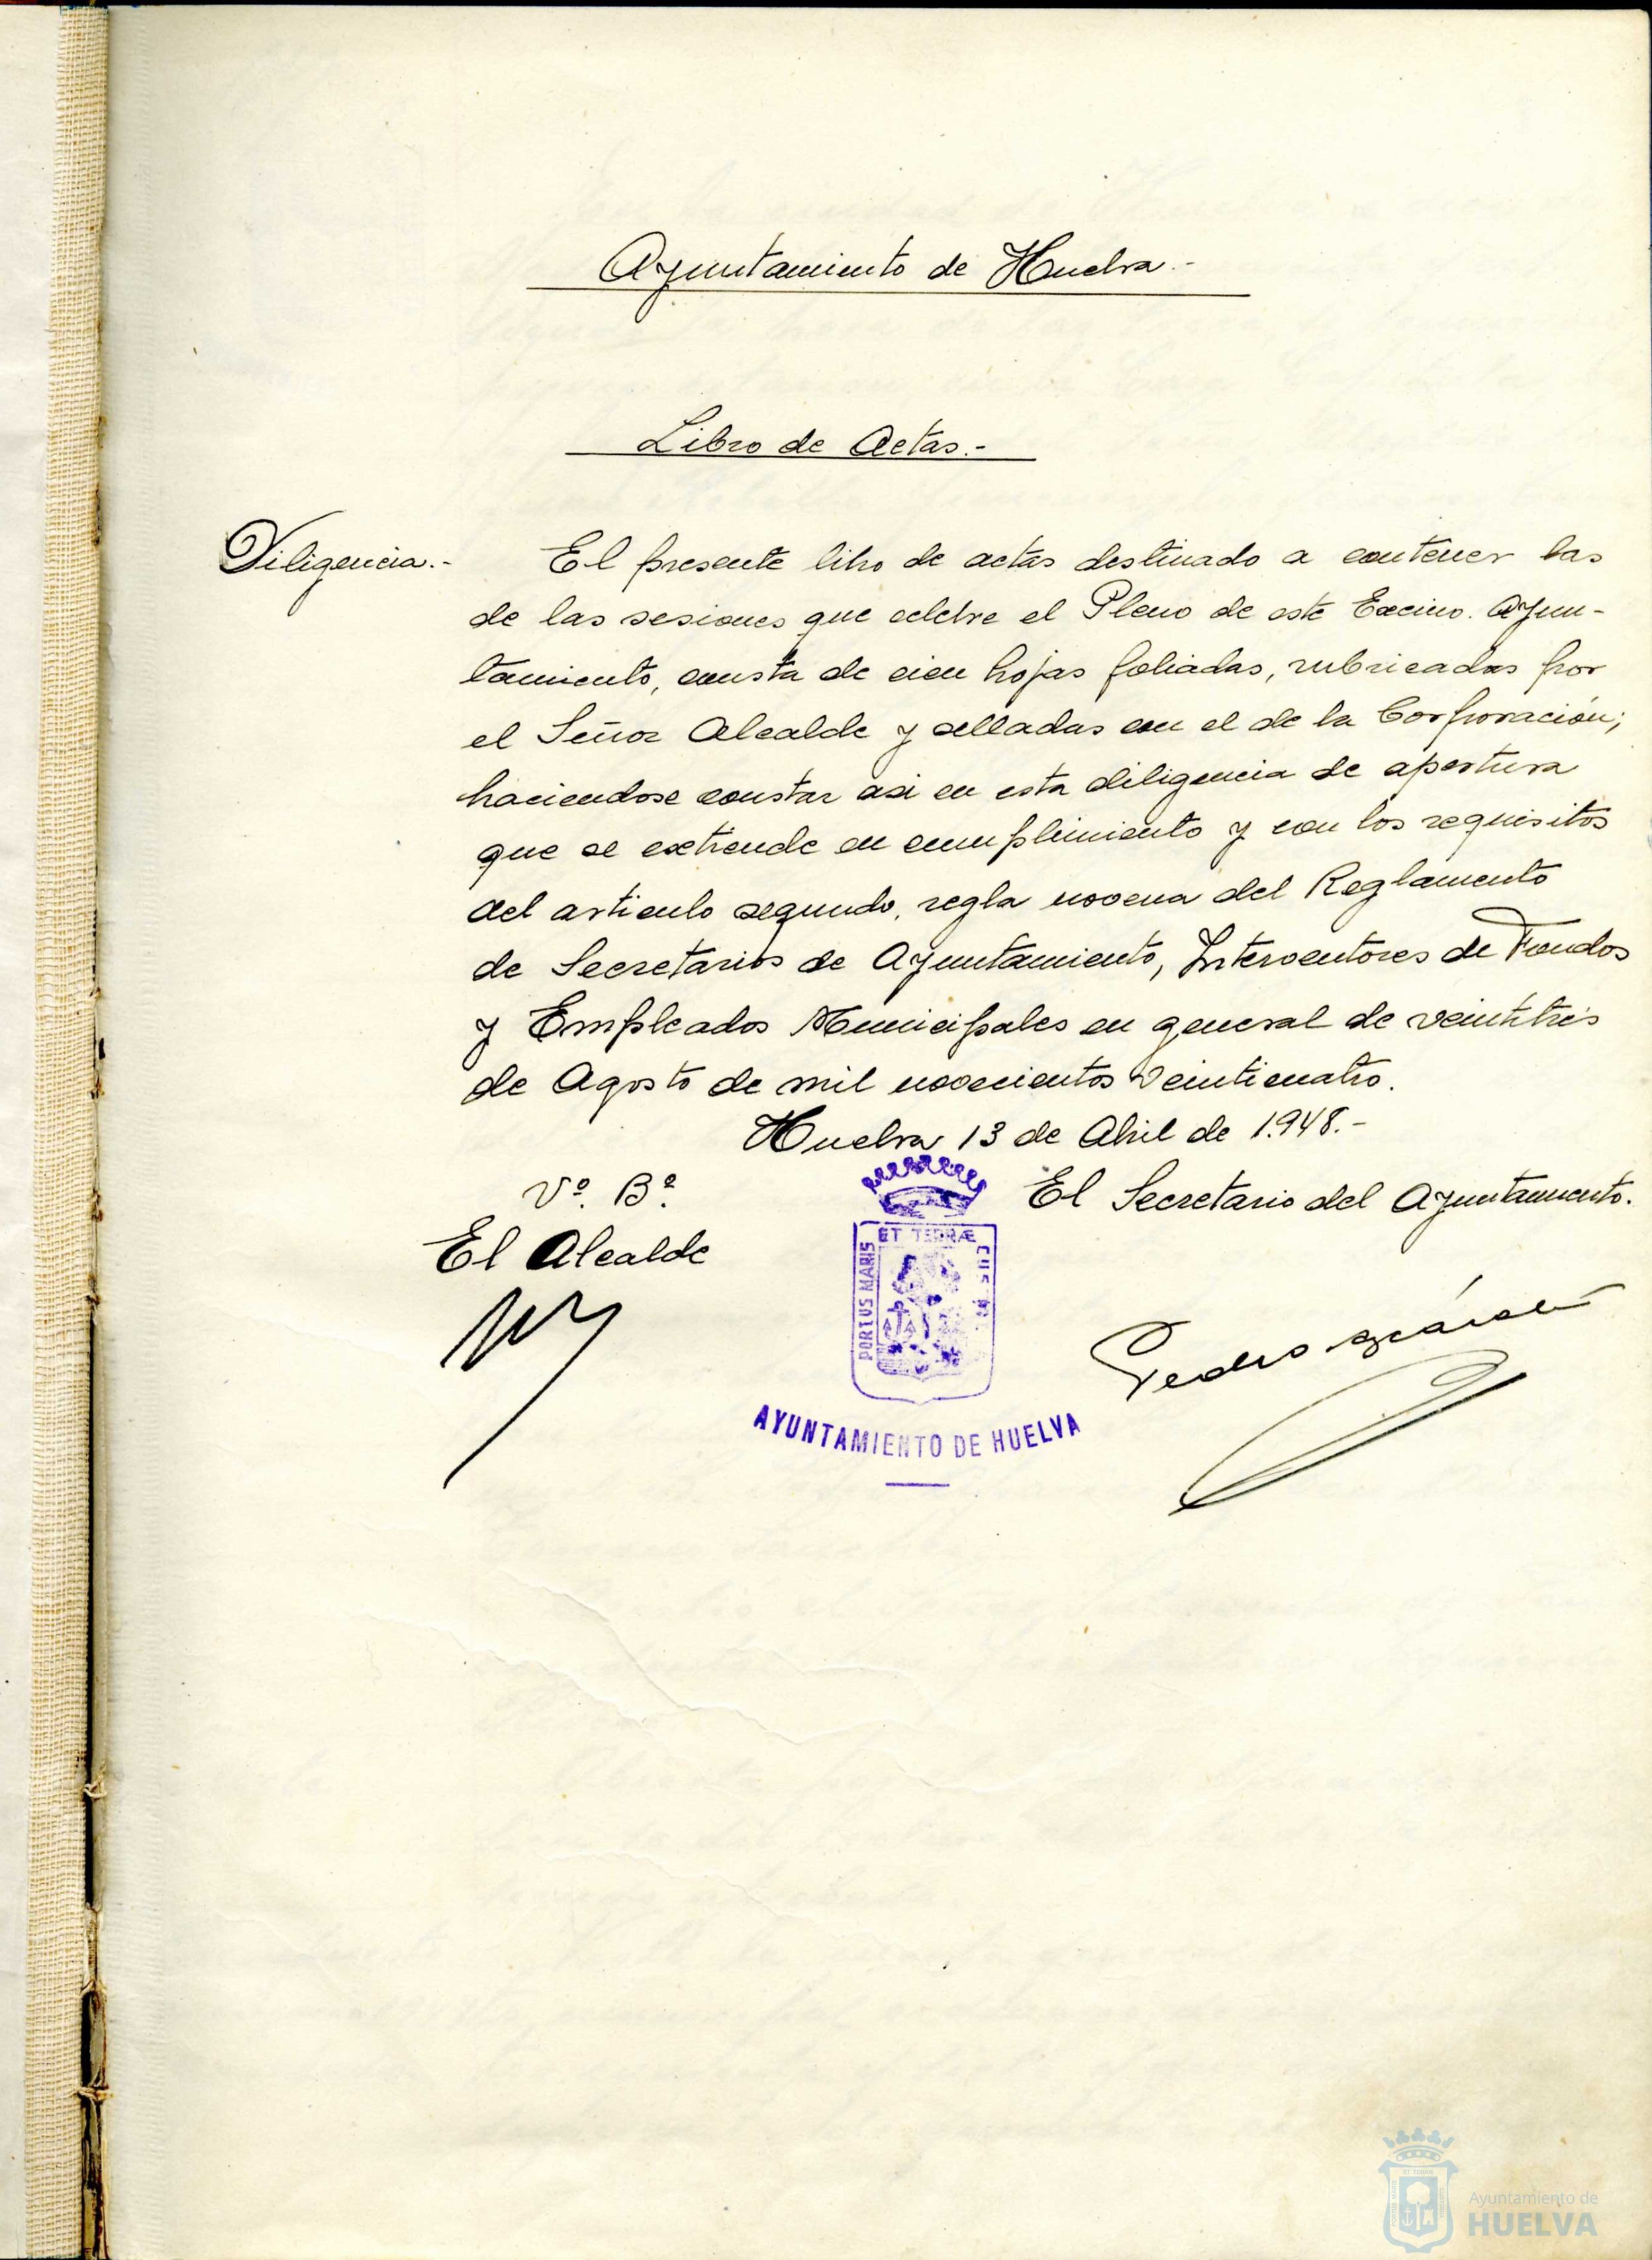 Ayuntamiento de Huelva.-
Libro de Actas.-
Diligencia.-
El presente libro de actas destinado a contener las
de las sesiones que celebre el Pleno de este Excmo. Ayun-
tamiento, consta de cien hojas foliadas, rubricadas por
el Señor Alcalde y selladas con el de la Corporación;
haciendose constar asi en esta diligencia de apertura
que se extiende en cumplimiento y con los requisitos
del articulo segundo, regla novena del Reglamento
de Secretarios de Ayuntamiento, Interventores de Fondos
y Empleados Municipales en general de veintitres
de Agosto de mil novecientos veinticuatro.
Huelva 13 de Abril de 1.948.-
Vº. Bº.
El Alcalde
El Secretario del Ayuntamiento.
PORTUS MARIS
ET TERRÆ
CUSTO
Pedro
AYUNTAMIENTO DE HUELVA
Ayuntamiento de
HUELVA